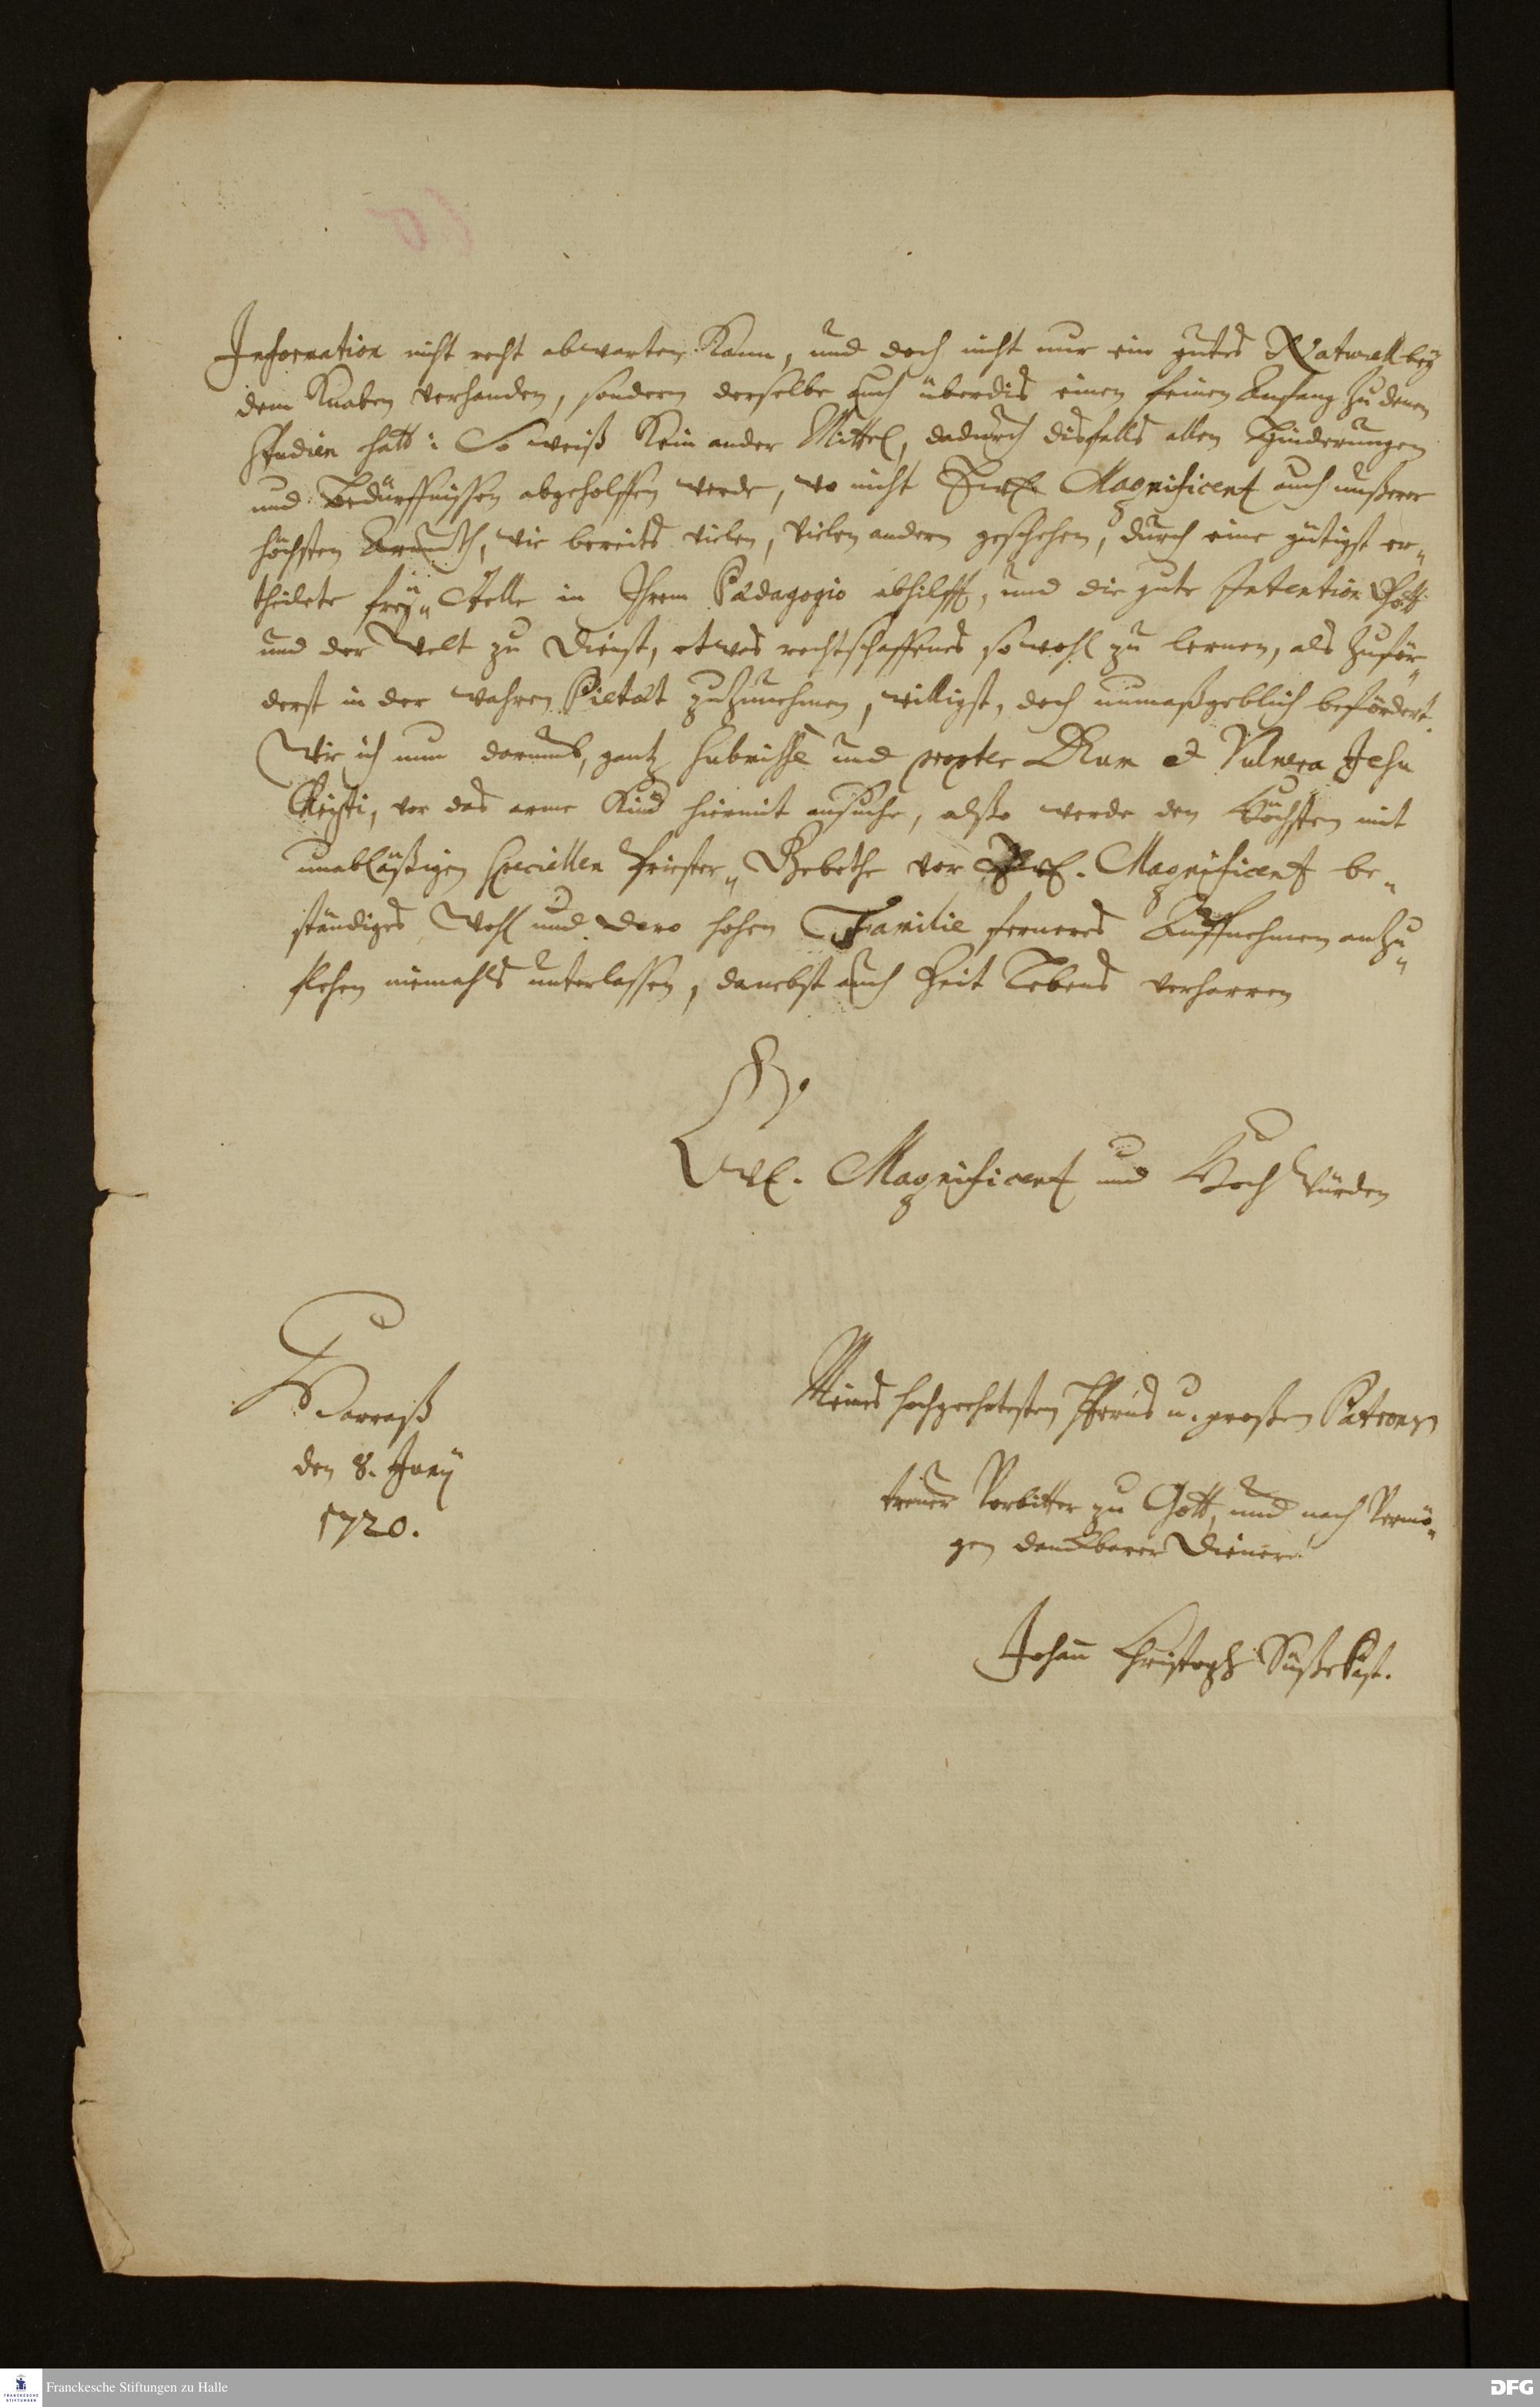 Information nicht recht abwarten kann, und doch nicht nur ein gutes Naturell bey
dem Knaben verhanden, sondern derselbe auch überdis einen feinen Anfang zu denen
Studien hatt: So weiß kein ander Mittel, dadurch disfalls allen Hinderungen
und Bedürffnissen abgeholffen werde, wo nicht Ewl. Magnificentz auch unßerer
höchsten Armuth, wie bereits vielen, vielen andern geschehen, durch eine gütigst er„
theilete frey„ Stelle in Ihrem Pædagogio abhilfft, und die gute Intention Gott
und der Welt zu Dienst, etwas rechtschaffenes sowohl zu lernen, als zuför„
derst in der wahren Pietæt zuzunehmen, willigst, doch unmaßgeblich befördert.
Wie ich nun darumb, gantz submisse und propter Deum et Vulnera Jesu
Christi, vor das arme Kind hiermit ansuche, alßo werde den Höchsten mit
unabläßigen speciellen Priester„ Gebethe vor Ewl. Magnificentz be„
ständiges Wohl und dero hohen Familie ferneres Auffnehmen anzu„
flehen niemahls unterlassen, danebst auch Zeit Lebens verharren
Ewl. Magnificentz und Hoch Würden
den 8. Junÿ
1720.
Meines hochgeehrtesten Herrns u. großen Patrons
treuer Vorbitter zu Gott, und nach Vermö„
gen danckbarer Diener
Johann Christoph Süßekäse.
Franckesche Stiftungen zu Halle
FRANCKESCHE STIFTUNGEN
DFG